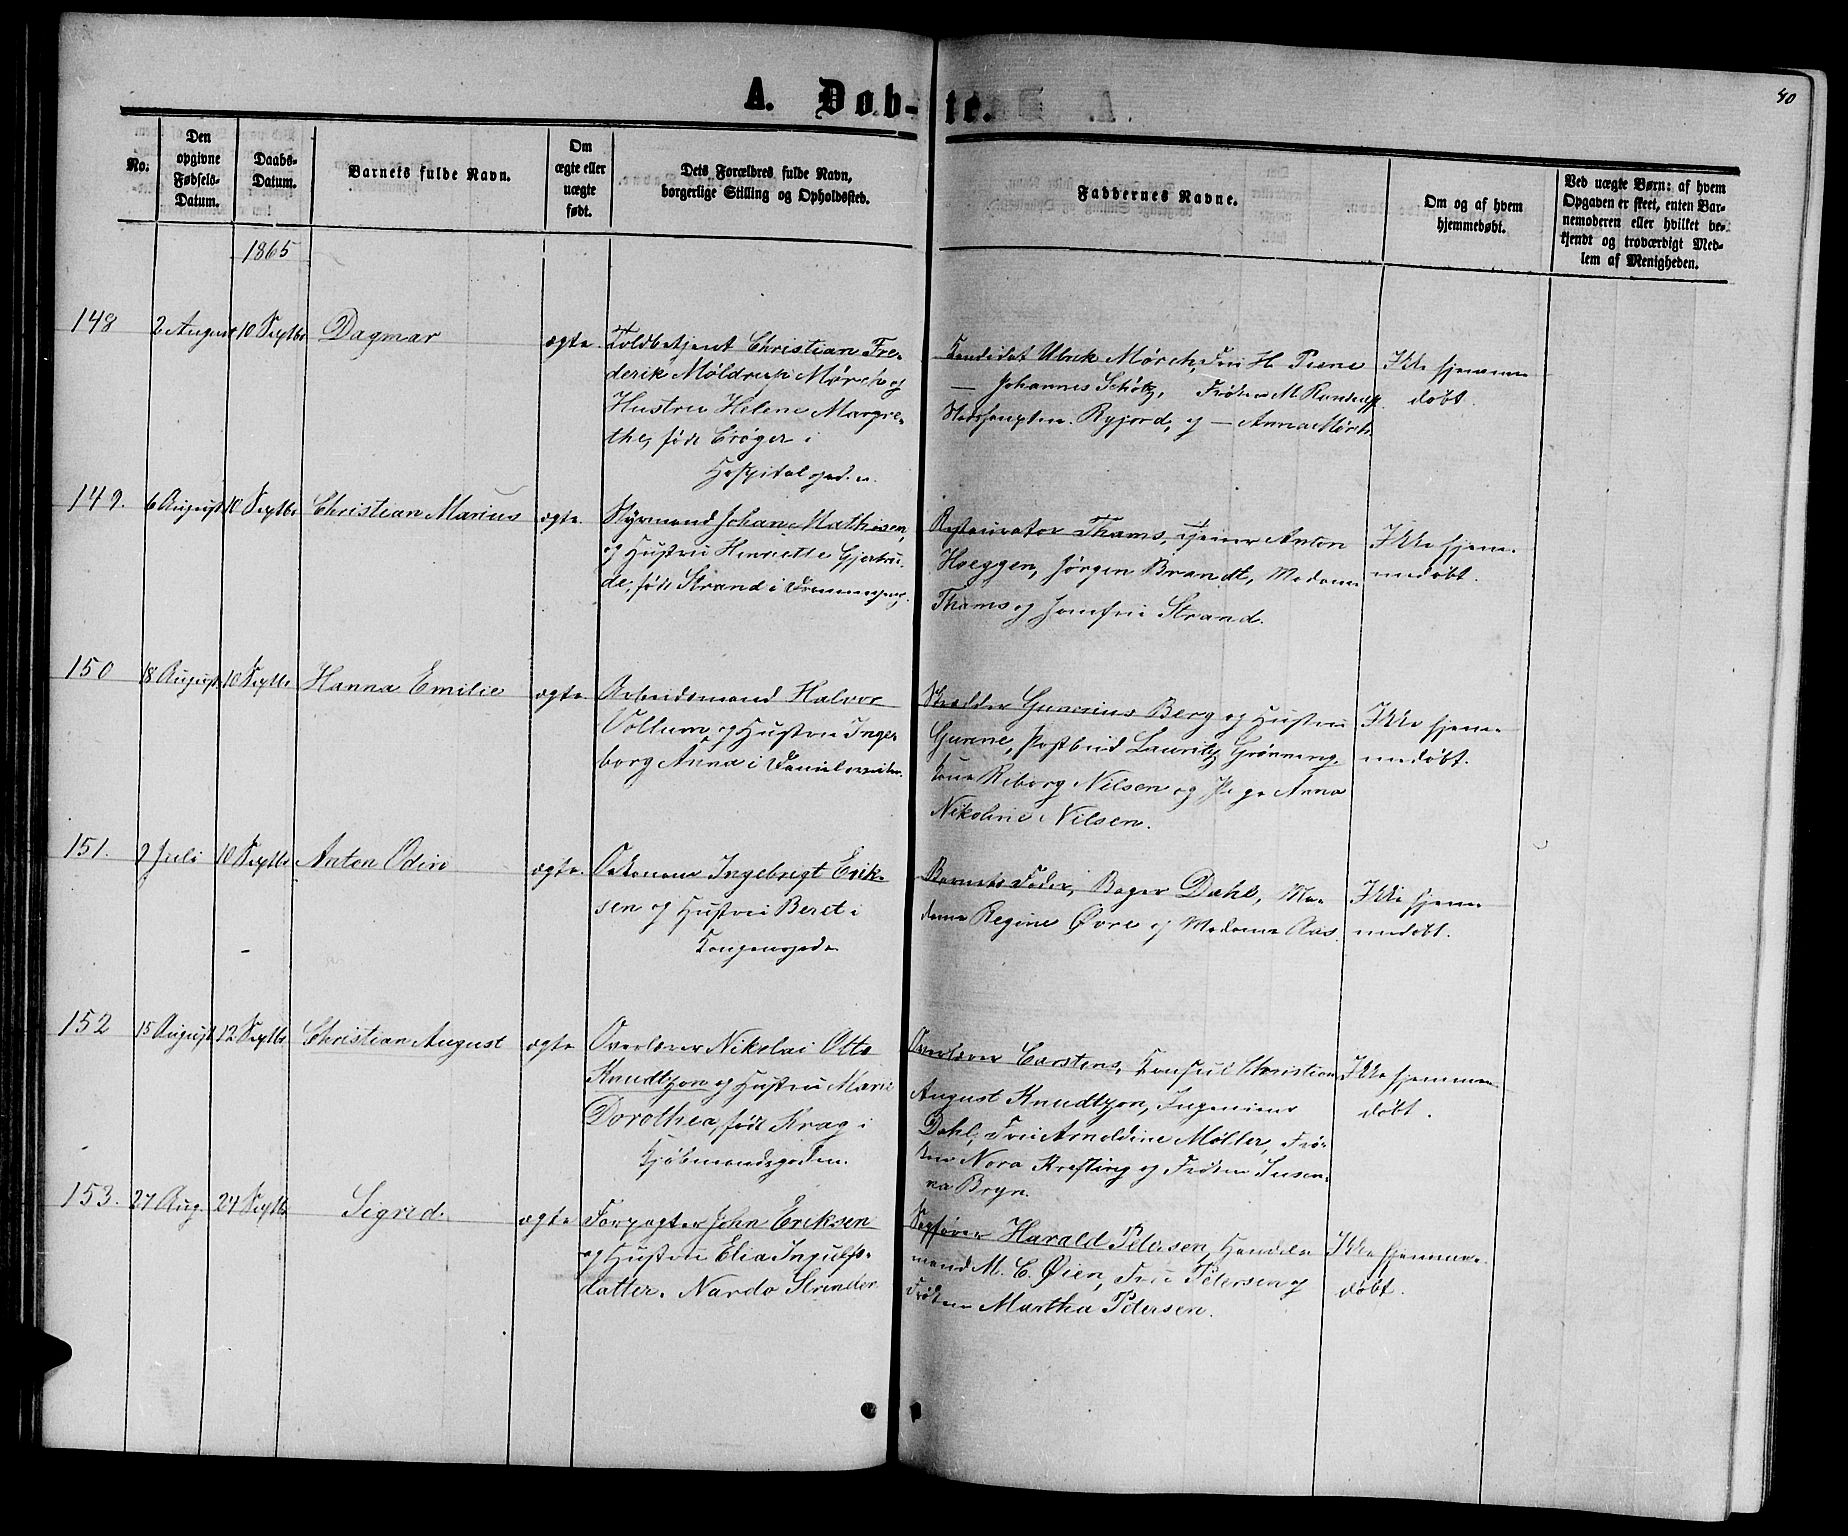 40
A. Døb-te.
No.
Den opgivne Fødsels-Datum.
Daabs-Datum.
Barnets fulde Navn.
Om ægte eller uægte født.
Dets Forældres fulde Navn, borgerlige Stilling og Opholdssted.
Faddernes Navne.
Om og af hvem hjemmedøbt.
Ved uægte Børn: af hvem Opgaven er skeet, enten Barnemoderen eller hvilket bekjendt og troværdigt Medlem af Menigheden.
1865
148
2 August
10 Septbr
Dagmar
ægte
Toldbetjent Christian Fre-
derik Møldrich Mørch og
Hustru Helene Margre-
the, født Crøger i
Hospitalsgaden.
Kandidat Ulrik Mørch, Fru H. Piene
— Johannes Schøtz, Frøken M.
og — Anna Mørch
Ikke hjemme-
døbt.
149.
6 August
10 Septbr
Christian Marius
ægte
Styrmand Johan Mathesen,
og Hustru Henriette Gjertru-
de, født Strand i
Restaurator Thams, Tjener Anton
Hoeggen, Jørgen Brandt, Madame
Thams og Jomfru Strand.
Ikke hjem-
medøbt.
150
18 August
10 Septbr
Hanna Emilie
ægte
Arbeidsmand Halvor
Vollum og Hustru Inge-
borg Anna i
Skrædder Gunerius Berg og Hustru
Gunne, Postbud Lauritz Grønning,
Riborg Nilsen og Pige Anna
Nikoline Nilsen.
Ikke hjem-
medøbt.
151.
2 Juli
10 Septbr
Anton Odin
ægte.
Ingebrigt Erik-
sen og Hustru Beret i
Kongensgade
Barnets Fader, Bager Dahl, Ma-
dame Regine Øvre og Madame Aas.
Ikke hjem-
medøbt.
152
15 August
12 Septbr
Christian August
ægte
Overlærer Nikolai Otto
Knudtzon og Hustru Marie
Dorothea, født Krag i
Kjøbmandsgaden.
Overlærer Carstens, Konsul Christian
August Knudtzon, Ingenieur
Dahl, Fru Arnoldine Møller, Frø-
ken Nora Krefting og Frøken Susan-
na Bryn.
Ikke hjemme-
døbt.
153.
27 Aug.
24 Septbr
Sigrid.
ægte
Forpagter John Eriksen
og Hustru Elia Ingulfs-
datter. Nardo Strinden
Sagfører Harald Petersen, Handels-
mand M. C. Øien, Fru Petersen og
Frøken Martha Petersen.
Ikke hjemme-
døbt.